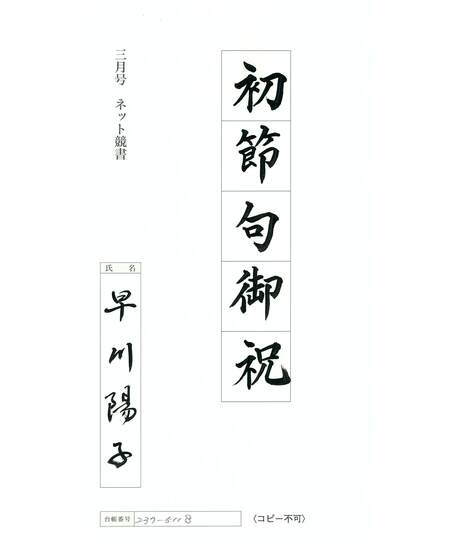 初節句御祝
三月号 ネット競書
氏名
早川陽子
台帳番号 237-5118
〈コピー不可〉